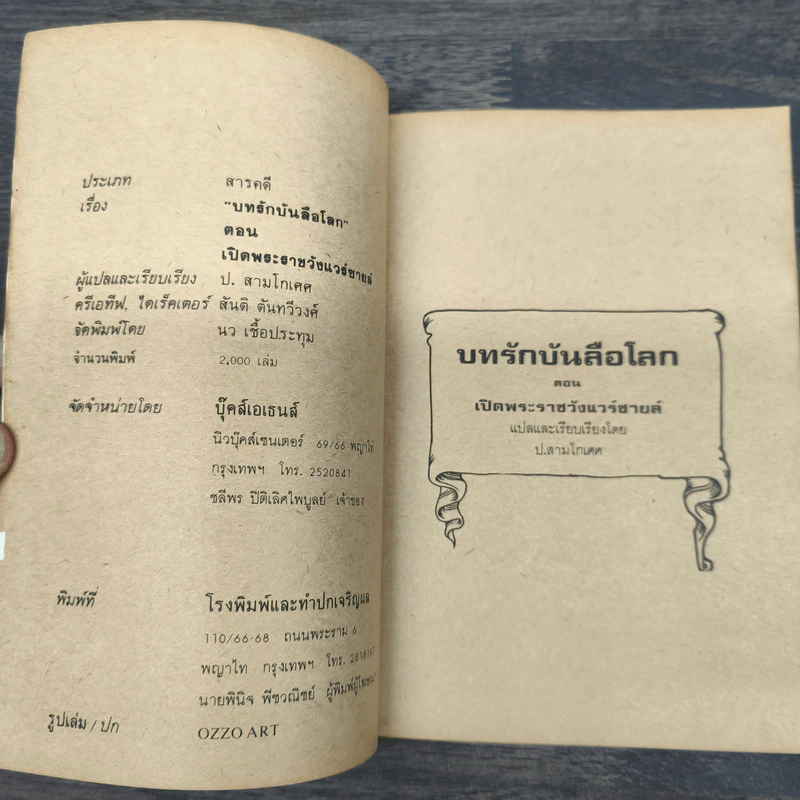 ประเภท สารคดี
เรื่อง "บทรักบันลือโลก"
ตอน
เปิดพระราชวังแวร์ซายส์
ผู้แปลและเรียบเรียง ป. สามโกเศศ
ครีเอทีฟ, ไดเร็คเตอร์ สันติ ตันทวีวงศ์
จัดพิมพ์โดย นว เชื้อประทุม
จำนวนพิมพ์ 2,000 เล่ม
จัดจำหน่ายโดย บุ๊คส์เอเธนส์
นิวบุ๊คส์เซนเตอร์ 69/66 พญาไท
กรุงเทพฯ โทร. 2520841
ชลีพร ปีติเลิศไพบูลย์ เจ้าของ
พิมพ์ที่ โรงพิมพ์และทำปกเจริญผล
110/66-68 ถนนพระราม 6
พญาไท กรุงเทพฯ โทร.
นายพินิจ พืชวณิชย์
รูปเล่ม / ปก OZZO ART
บทรักบันลือโลก
ตอน
เปิดพระราชวังแวร์ซายส์
แปลและเรียบเรียงโดย
ป.สามโกเศศ